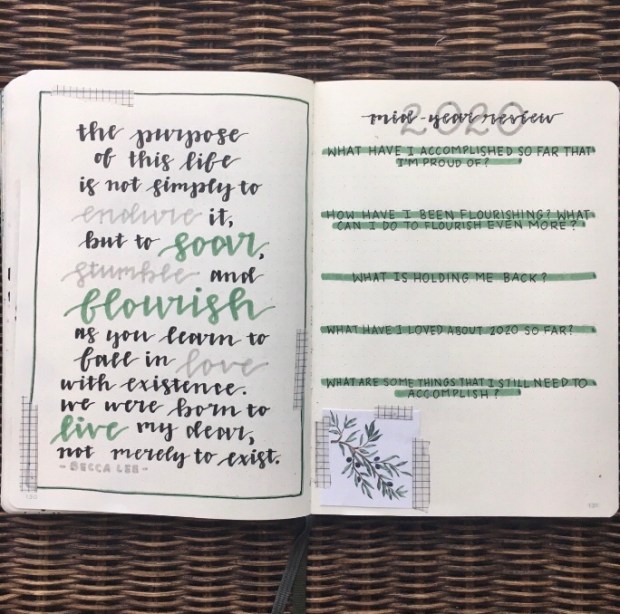 the purpose
of this life
is not simply to
endure it,
but to soar,
stumble and
flourish
as you learn to
fall in love
with existence.
we were born to
live my dear,
not merely to exist.
- BECCA LEE -
2020
mid-year review
WHAT HAVE I ACCOMPLISHED SO FAR THAT
I'M PROUD OF?
HOW HAVE I BEEN FLOURISHING? WHAT
CAN I DO TO FLOURISH EVEN MORE?
WHAT IS HOLDING ME BACK?
WHAT HAVE I LOVED ABOUT 2020 SO FAR?
WHAT ARE SOME THINGS THAT I STILL NEED TO
ACCOMPLISH?